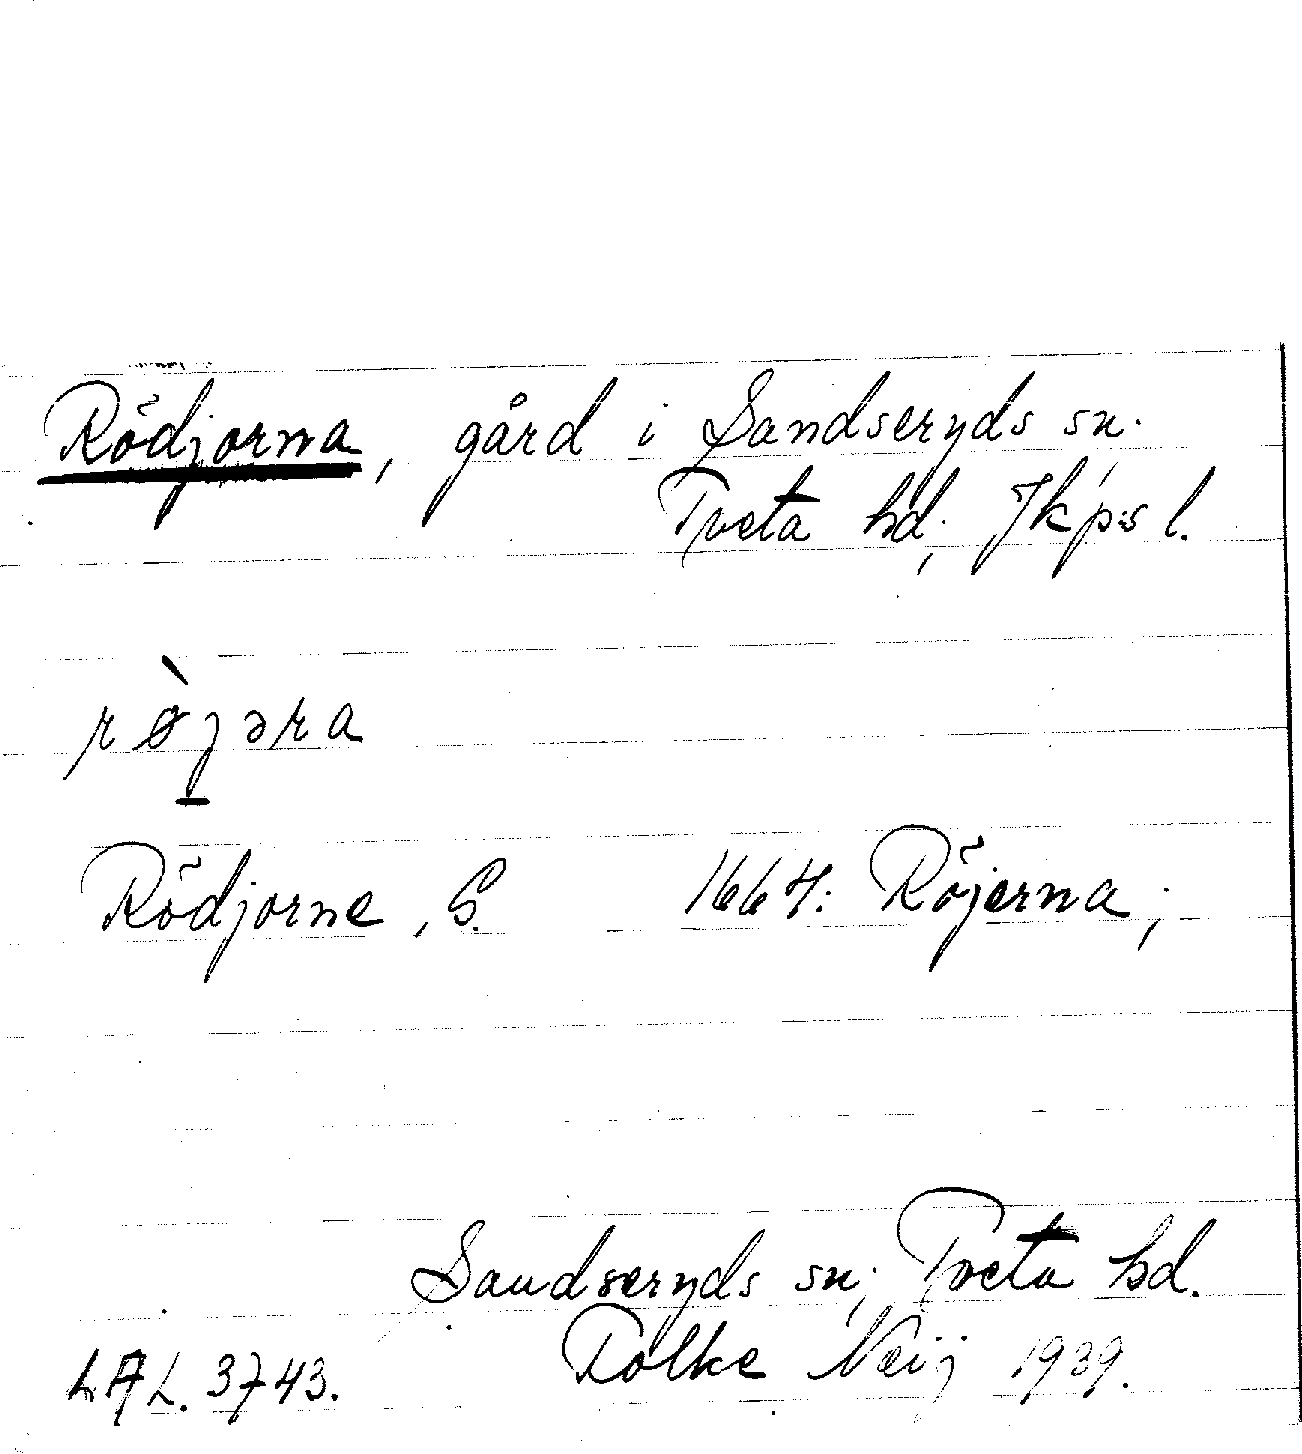 Rödjorna, gård i Sandseryds sn.
Tveta hd, Jkp:s l.
rø̀jəra
Rödjorne, S. 1664: Röjerna;
Sandseryds sn; Tveta hd.
LAL. 3743. Folke Neij 1939.